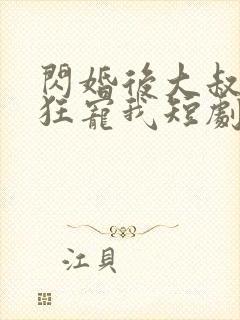 閃婚後大叔
狂寵我短劇
江貝